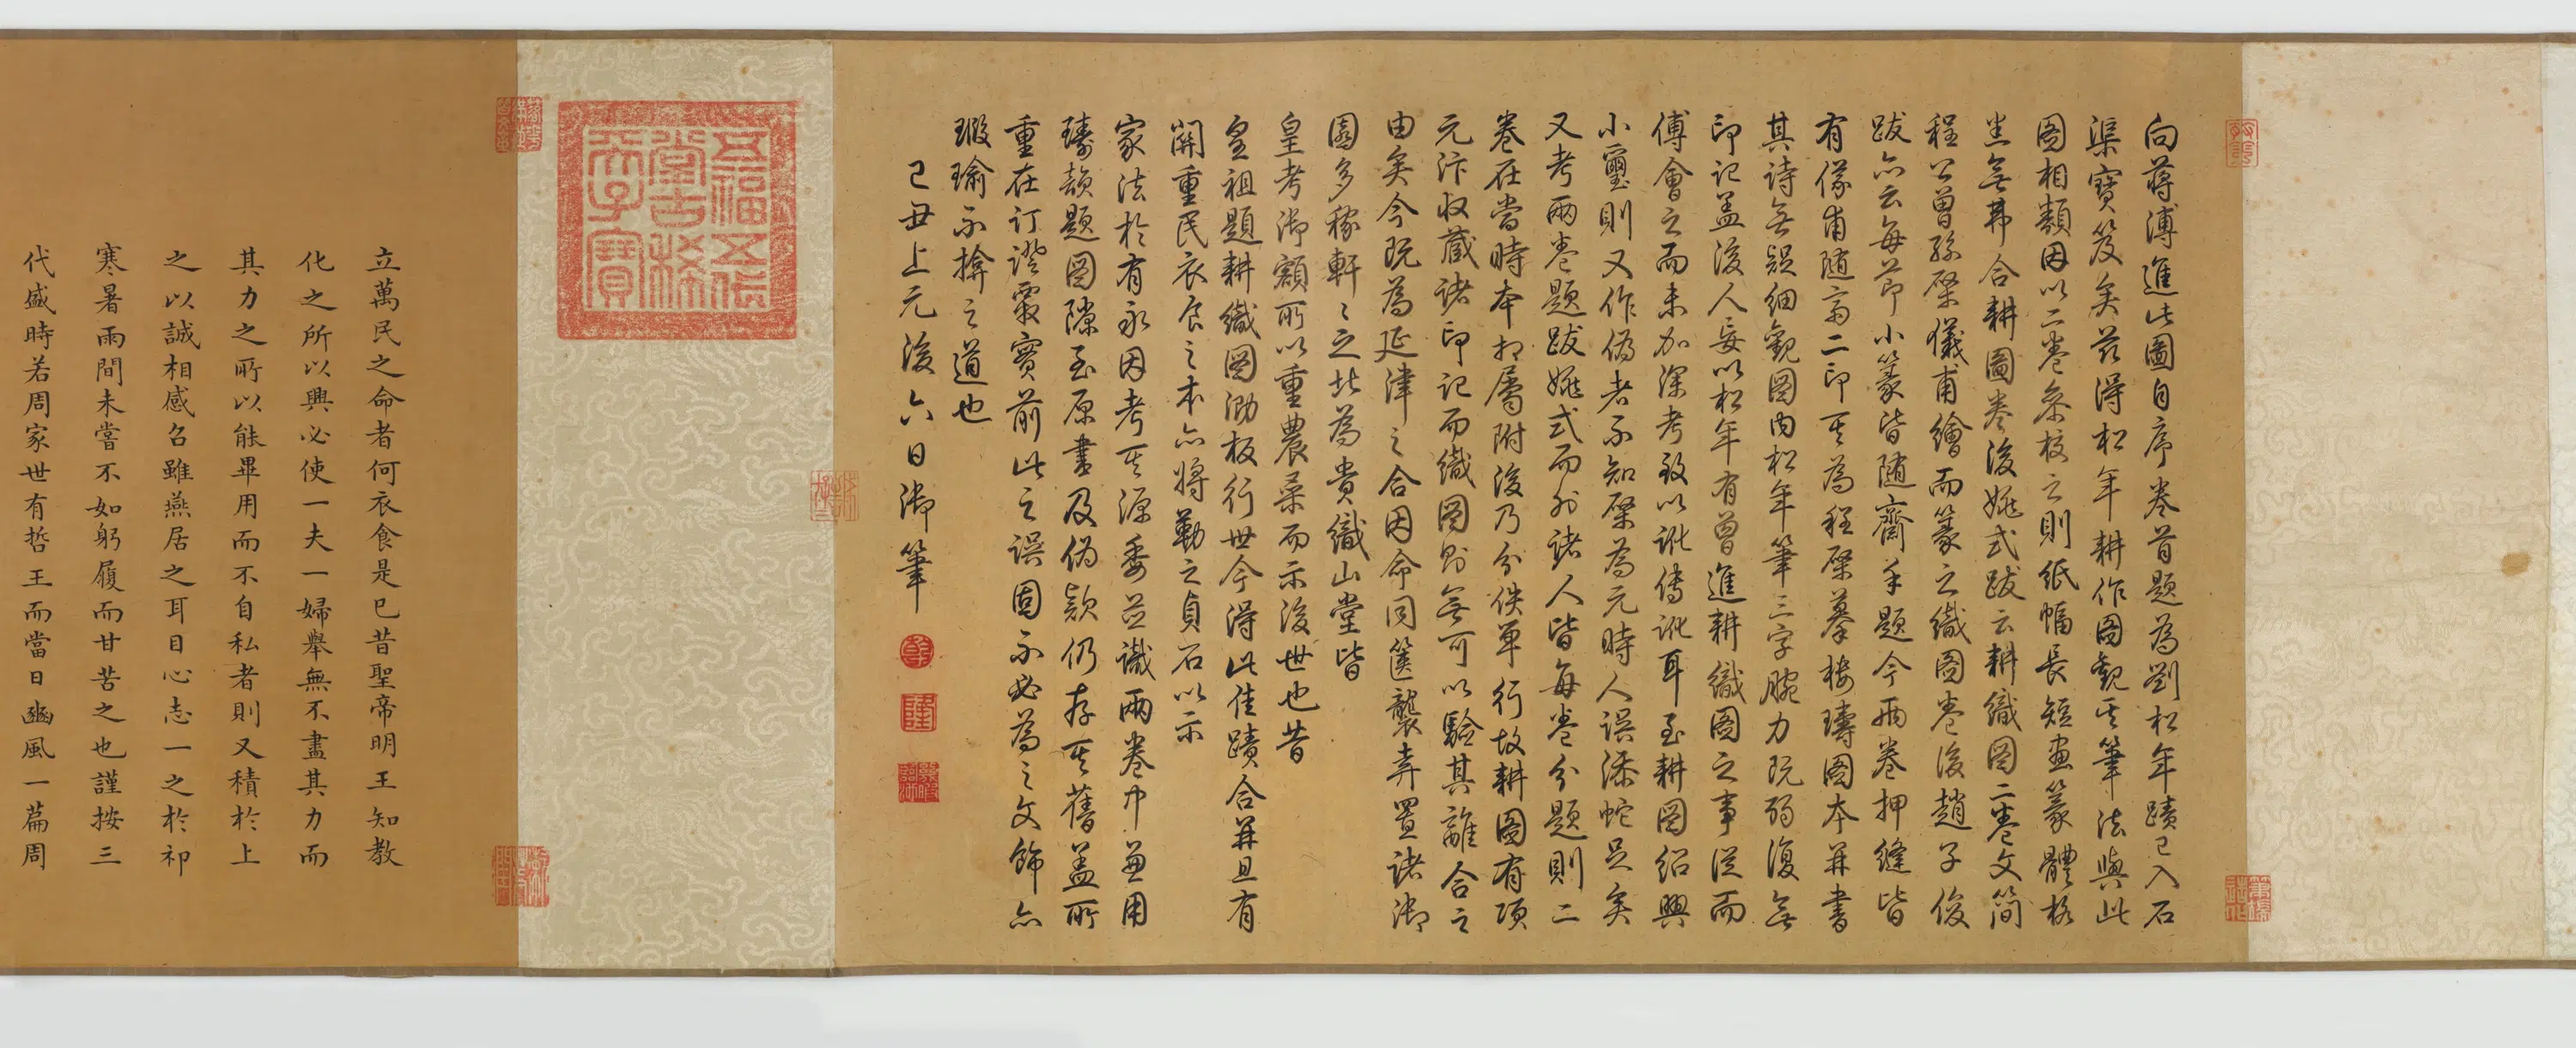 向蔣溥進此圖自序卷首題為劉松年蹟已入石
渠寶笈矣茲得松年耕作圖觀其筆法與此
圖相類因以二卷叅校之則紙幅長短畫篆體格
悉無弗合耕圖卷後姚式跋云耕織圖二卷文簡
程公曾孫棨儀甫繪而篆之織圖卷後趙子俊
跋亦云每節小篆皆隨齋手題今兩卷押縫皆
有儀甫隨齋二印其為程棨摹樓璹圖本并書
其詩無疑細觀圖內松年筆三字腕力既弱復無
印記盖後人妄以松年有曾進耕織圖之事從而
傅會之而未加深考致以訛傳訛耳至耕圖紹興
小璽則又作偽者不知棨為元時人誤添蛇足矣
又考兩卷題跋姚式而外諸人皆每卷分題則二
卷在當時本相屬附後乃分佚單行故耕圖有項
元汴收蔵諸印記而織圖則無可以驗其離合之
由矣今既為延津之合因命同篋襲弆置諸御
園多稼軒軒之北為貴織山堂皆
皇考御額所以重農桑而示後世也昔
皇祖題耕織圖泐板行世今得此佳蹟合并且有
關重民衣食之本亦將勒之貞石以示
家法於有永因考其源委並識兩卷中兼用
璹韻題圖隙至原書及偽款仍存其舊盖所
重在訂證覈實前此之誤固不必為之文飾亦
瑕瑜不揜之道也
己丑上元後六日御筆
乾
隆
五福五代
堂古稀
天子寶
立萬民之命者何衣食是已昔聖帝明王知教
化之所以興必使一夫一婦舉無不盡其力而
其力之所以能畢用而不自私者則又積於上
之以誠相感召雖燕居之耳目心志一之於祁
寒暑雨間未嘗不如躬履而甘苦之也謹按三
代盛時若周家世有哲王而當日豳風一篇周